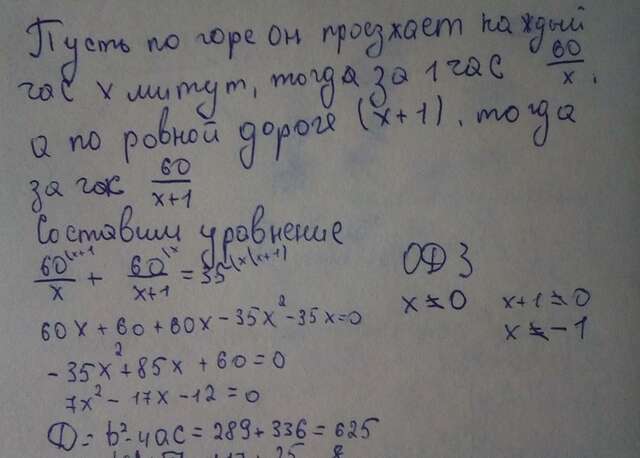 Пусть по горе он проезжает каждый
час х минут, тогда за 1 час 60/x,
а по ровной дороге (x+1), тогда
за час 60/x+1
Составим уравнение
60\x+1/x + 60\x/x+1 = 35\x(x+1) ОДЗ
x≠0 x+1≠0
60x+60+60x-35x²-35x=0
x≠-1
-35x²+85x+60=0
7x²-17x-12=0
D=b²-4ac=289+336=625